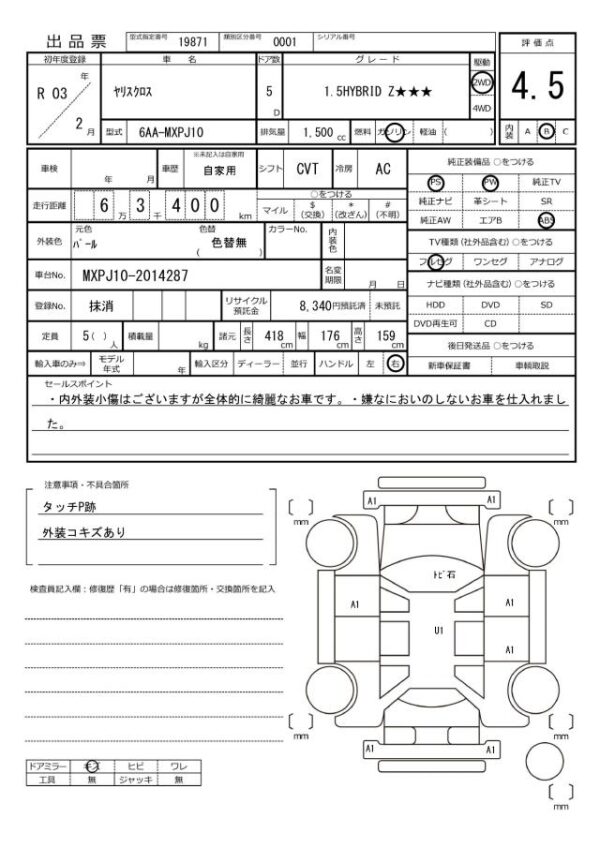 出品票
型式指定番号 19871 類別区分番号 0001 シリアル番号
評価点
4.5
初年度登録 車名 ドア数 グレード 駆動
R 03 年 2 月
ﾔﾘｽｸﾛｽ
5 D
1.5HYBRID Z★★★
2WD
4WD
型式 6AA-MXPJ10 排気量 1,500 cc 燃料 ガソリン 軽油 ( )
内装 A B C
車検 年 月 車歴 ※未記入は自家用 自家用 シフト CVT 冷房 AC
走行距離 6 万 3 千 4 0 0 km
○をつける
マイル $(交換) *(改ざん) #(不明)
外装色 元色 ﾊﾟｰﾙ 色替 色替無 ( ) カラーNo. 内装色
車台No. MXPJ10-2014287 名変期限 月 日
登録No. 抹消 リサイクル預託金 8,340円預託済 未預託
定員 5( )人 積載量 kg 諸元 長さ 418 cm 幅 176 cm 高さ 159 cm
輸入車のみ⇒ モデル年式 年 輸入区分 ディーラー 並行 ハンドル 左 右
純正装備品 ○をつける
PS PW 純正TV
純正ナビ 革シート SR
純正AW エアB ABS
TV種類(社外品含む)○をつける
フルセグ ワンセグ アナログ
ナビ種類(社外品含む)○をつける
HDD DVD SD
DVD再生可 CD
後日発送品 ○をつける
新車保証書 車輌取説
セールスポイント
・内外装小傷はございますが全体的に綺麗なお車です。・嫌なにおいのしないお車を仕入れまし
た。
注意事項・不具合箇所
タッチP跡
外装コキズあり
検査員記入欄：修復歴「有」の場合は修復箇所・交換箇所を記入
ドアミラー キズ ヒビ ワレ
工具 無 ジャッキ 無
A1 A1
[ ] mm [ ] mm
ﾄﾋﾞ石
A1 A1
U1
A1
[ ] mm [ ] mm
A1 A1
[ ] mm